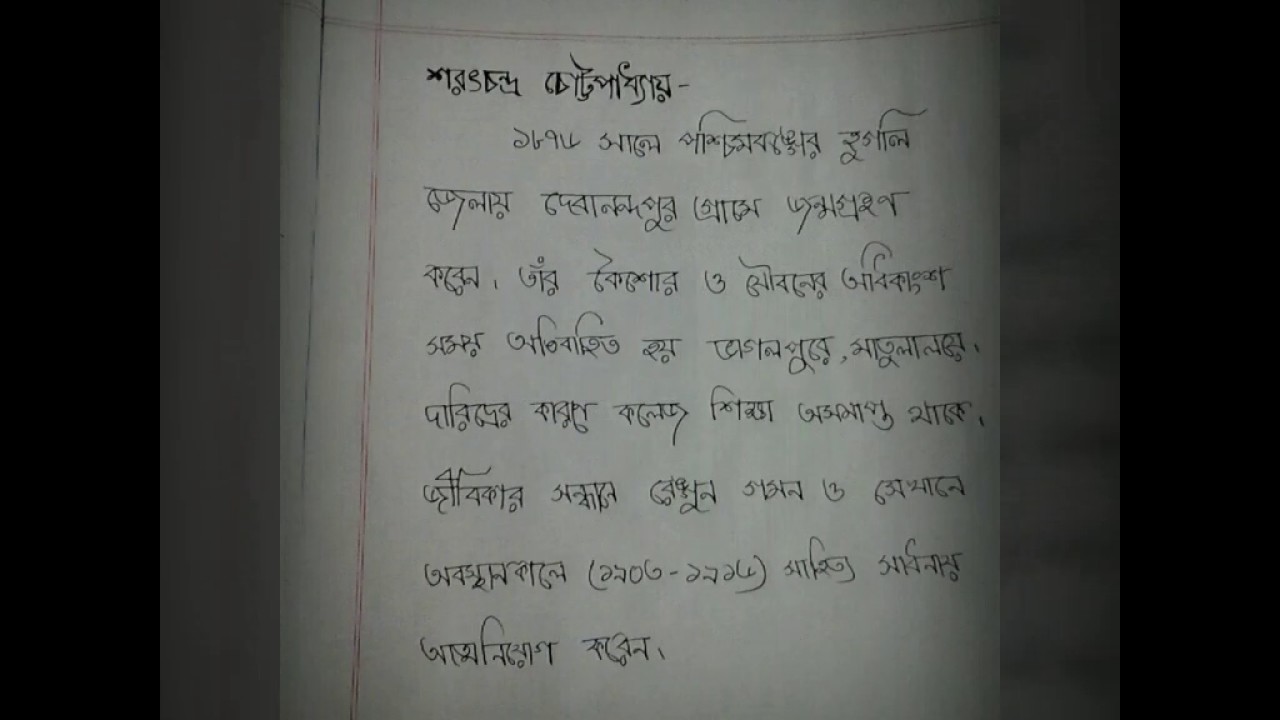 শরৎচন্দ্র চোট্টপাধ্যায়-
১৮৭৬ সালে পশ্চিমবঙ্গের হুগলি
জেলায় দেবানন্দপুর গ্রামে জন্মগ্রহণ
করেন। তাঁর কৈশোর ও যৌবনের অধিকাংশ
সময় অতিবাহিত হয় ভাগলপুরে, মাতুলালয়ে।
দারিদ্রের কারণে কলেজ শিক্ষা অসমাপ্ত থাকে।
জীবিকার সন্ধানে রেঙ্গুন গমন ও সেখানে
অবস্থানকালে (১৯০৩-১৯১৬) সাহিত্য সাধনায়
আত্মনিয়োগ করেন।